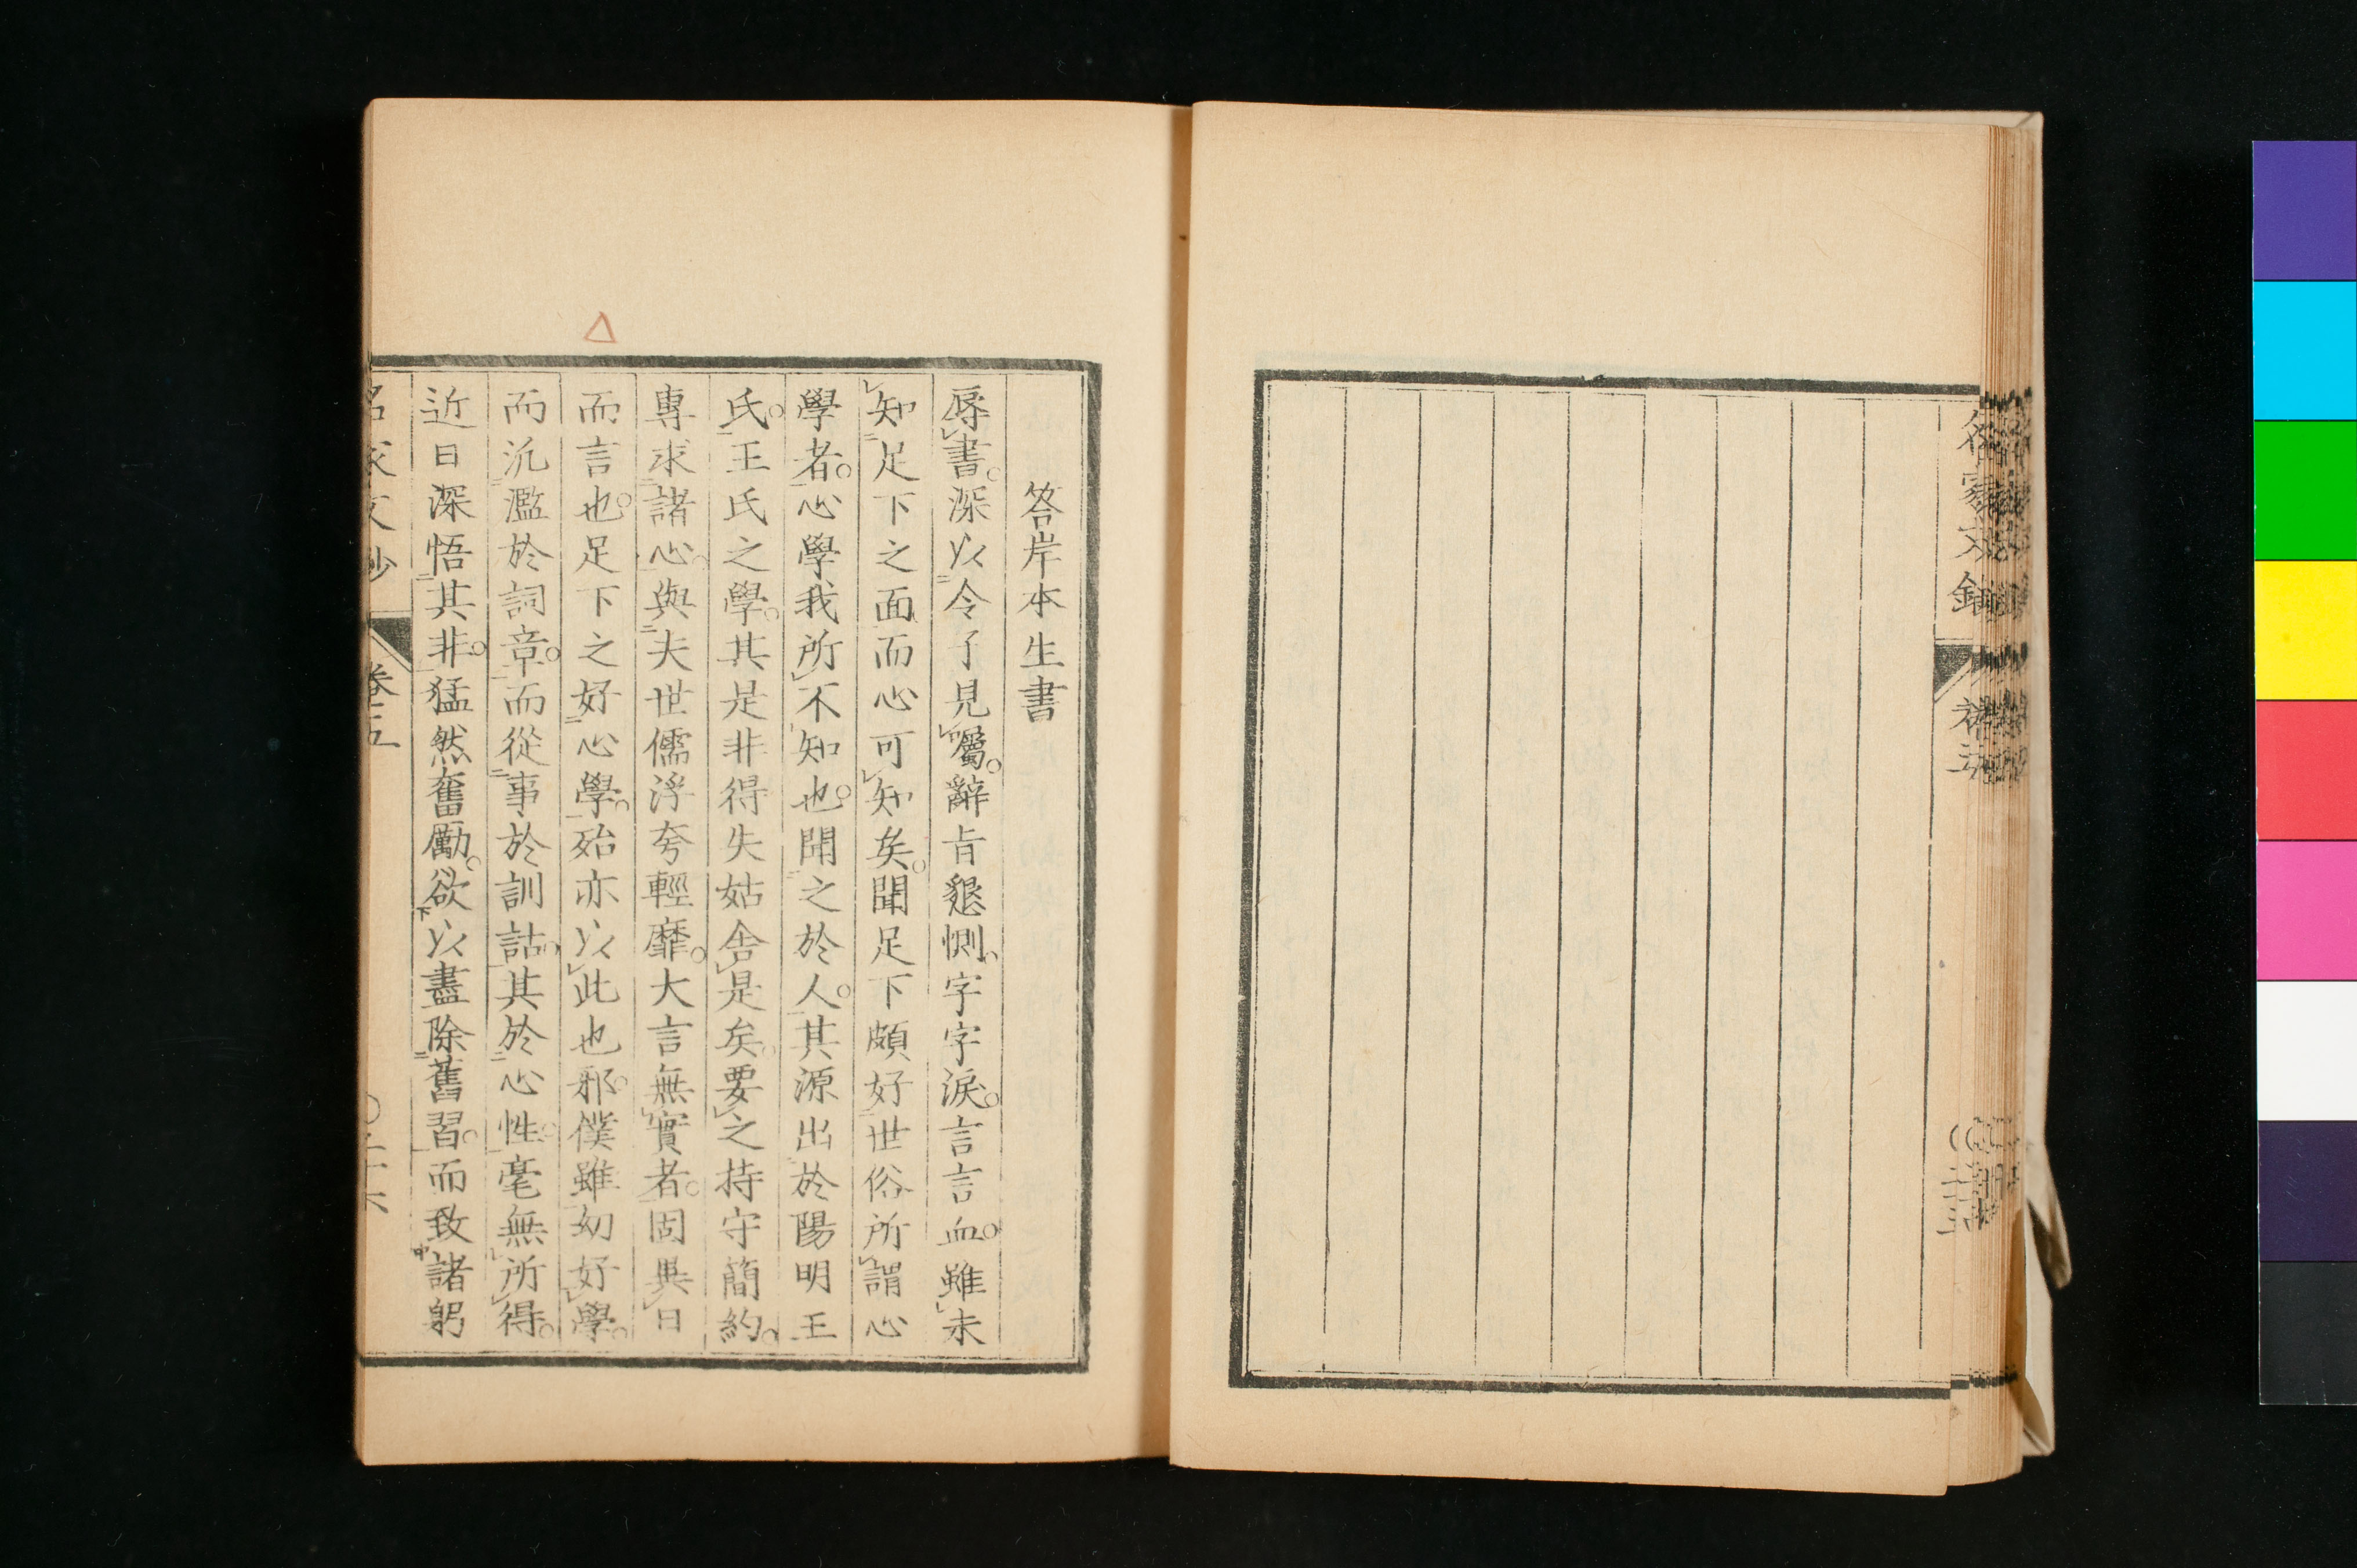 答岸本生書
辱書深以令了見屬辭旨懇惻字字淚言言血雖未
知足下之面而心可知矣聞足下頗好世俗所謂心
學者心學我所不知也聞之於人其源出於陽明王
氏王氏之學其是非得失姑舍是矣要之持守簡約
專求諸心與夫世儒浮夸輕靡大言無實者固異日
而言也足下之好心學殆亦以此也邪僕雖幼好學
而沉濫於詞章而從事於訓詁其於心性毫無所得
近日深悟其非猛然奮勵欲以盡除舊習而致諸躬
名家文抄 卷五